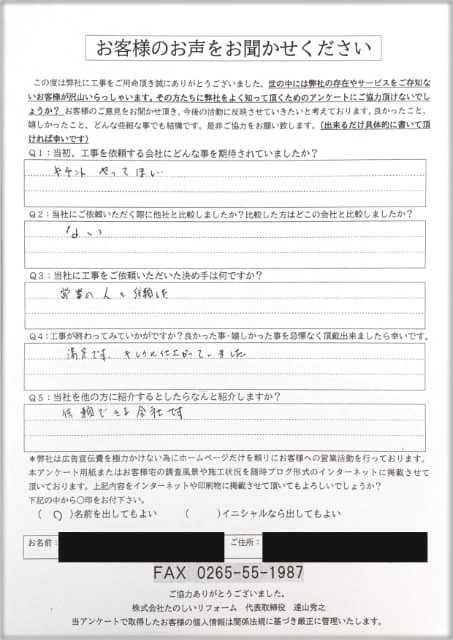 お客様のお声をお聞かせください
この度は弊社に工事をご用命頂き誠にありがとうございました。世の中には弊社の存在やサービスをご存知ないお客様が沢山いらっしゃいます。その方たちに弊社をよく知って頂くためのアンケートにご協力頂けないでしょうか？お客様のご意見をお聞かせ頂き、今後の活動に反映させていきたいと考えております。良かったこと、嬉しかったこと、どんな些細な事でも結構です。是非ご協力をお願い致します。(出来るだけ具体的に書いて頂ければ幸いです)
Q1：当初、工事を依頼する会社にどんな事を期待されていましたか？
キチント やってほしい
Q2：当社にご依頼いただく際に他社と比較しましたか？比較した方はどこの会社と比較しましたか？
ない
Q3：当社に工事をご依頼いただいた決め手は何ですか？
営業の人を信頼した
Q4：工事が終わってみていかがですか？良かった事・嬉しかった事を忌憚なく頂戴出来ましたら幸いです。
満足です。キレイに仕上がっていました
Q5：当社を他の方に紹介するとしたらなんと紹介しますか？
信頼できる会社です
＊弊社は広告宣伝費を極力かけない為にホームページだけを頼りにお客様への営業活動を行っております。
本アンケート用紙またはお客様宅の調査風景や施工状況を随時ブログ形式のインターネットに掲載させて
頂いております。上記内容をインターネットや印刷物に掲載させて頂いてもよろしいでしょうか？
下記の中から○印をお付下さい。
(○)名前を出してもよい (　)イニシャルなら出してもよい
お名前： ご住所：
FAX 0265-55-1987
ご協力ありがとうございました。
株式会社たのしいリフォーム 代表取締役 遠山秀之
当アンケートで取得したお客様の個人情報は関係法規に基づき厳正に管理いたします。